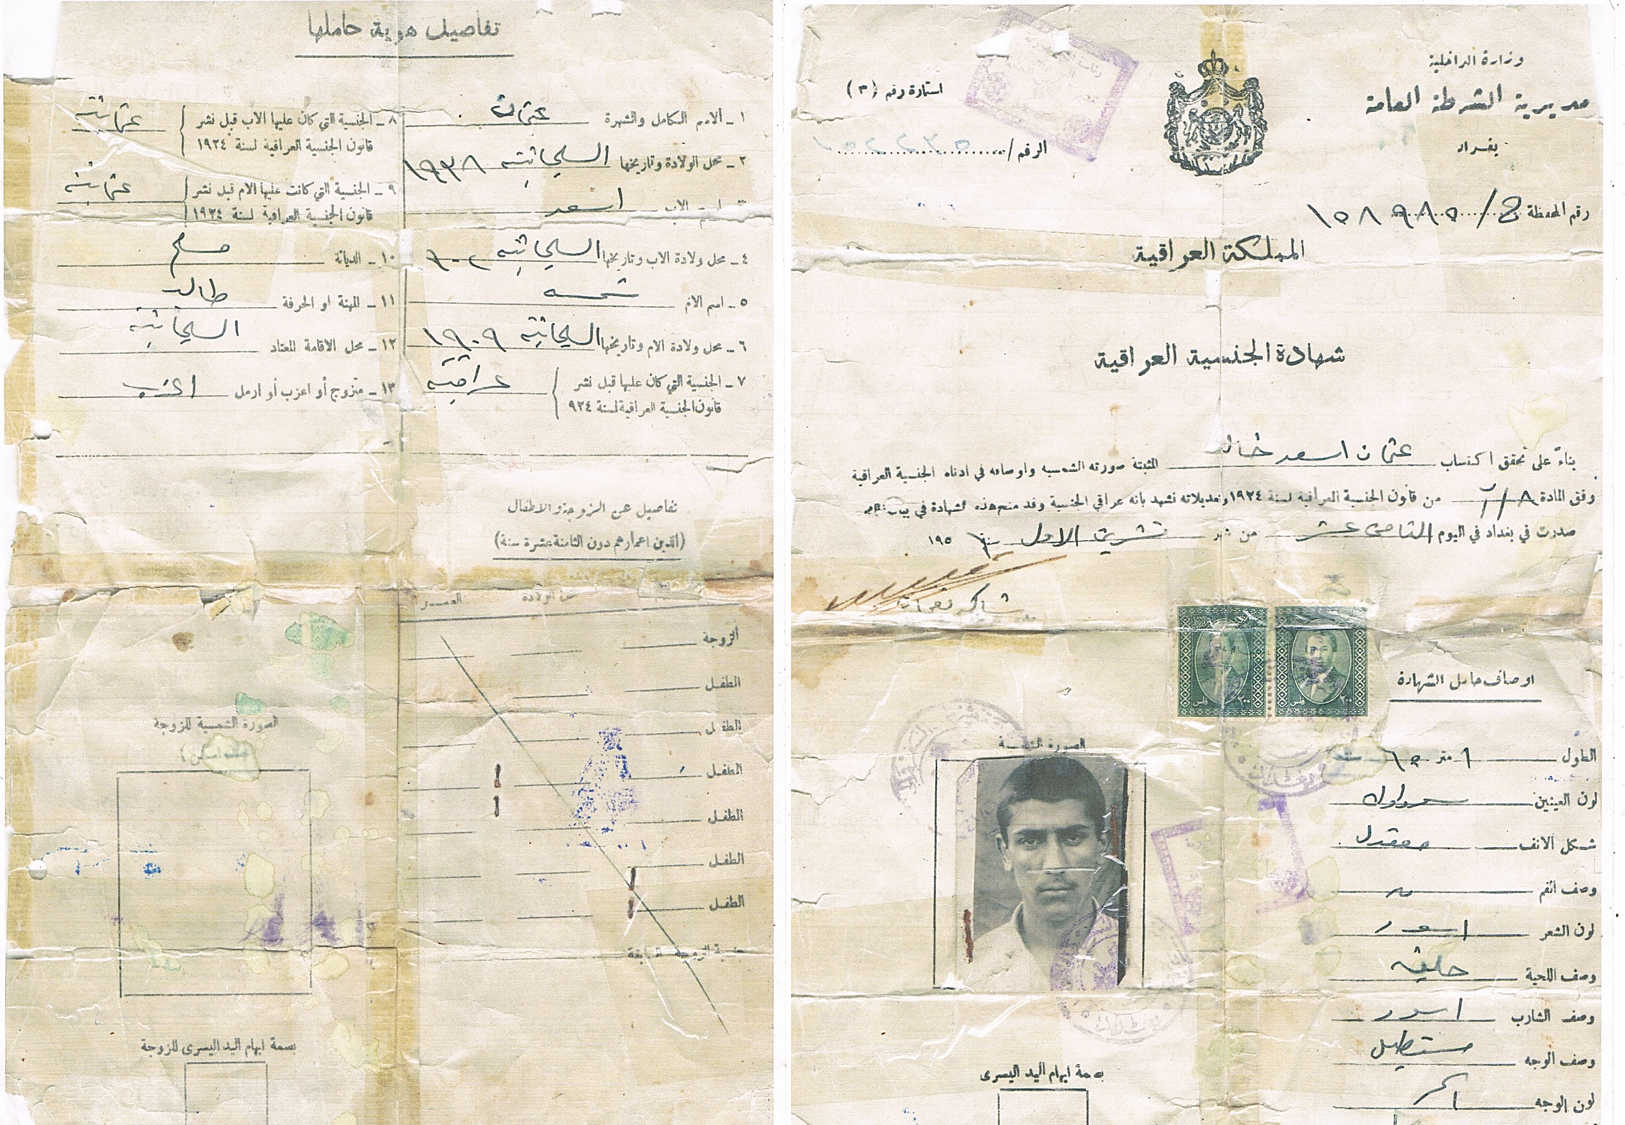 تفاصيل هوية حاملها
١ ـ الاسم الكامل والشهرة عثمان
٢ ـ محل الولادة وتاريخها السليمانية ١٩٣٨
٣ ـ اسم الاب اسعد
٤ ـ محل ولادة الاب وتاريخها السليمانية ٩٠٢
٥ ـ اسم الام شمسه
٦ ـ محل ولادة الام وتاريخها السليمانية ١٩٠٩
٧ ـ الجنسية التي كان عليها قبل نشر
قانون الجنسية العراقية لسنة ٩٢٤ عراقية
٨ ـ الجنسية التي كان عليها الاب قبل نشر
قانون الجنسية العراقية لسنة ١٩٢٤ عثمانية
٩ ـ الجنسية التي كانت عليها الام قبل نشر
قانون الجنسية العراقية لسنة ١٩٢٤ عثمانية
١٠ ـ الديانة مسلم
١١ ـ المهنة او الحرفة طالب
١٢ ـ محل الاقامة المعتاد السليمانية
١٣ ـ متزوج أو اعزب أو ارمل اعزب
تفاصيل عن الزوجة والاطفال
(الذين اعمارهم دون الثامنة عشرة سنة)
الولادة العمر
الزوجة
الطفل
الطفل
الطفل
الطفل
الطفل
الطفل
الصورة الشمسية للزوجة
بصمة ابهام اليد اليسرى للزوجة
وزارة الداخلية
مديرية الشرطة العامة
بغداد
استمارة رقم (٣)
الرقم /
رقم المحفظة ج/ ١٥٨٩٨٥
المملكة العراقية
شهادة الجنسية العراقية
بناءً على تحقق اكتساب عثمان اسعد خالد المثبتة صورته الشمسيه واوصافه في ادناه الجنسية العراقية
وفق المادة ٨/أ من قانون الجنسية العراقية لسنة ١٩٢٤ وتعديلاته نشهد بانه عراقي الجنسية وقد منح هذه الشهادة في
صدرت في بغداد في اليوم الثامن عشر من شهر تشرين الاول سنة ١٩٥
اوصاف حامل الشهادة
الصورة الشمسية
الطول ١ متر ٦٥
لون العينين سوداوان
شكل الانف معتدل
وصف الفم
لون الشعر اسود
وصف اللحية حليقه
وصف الشارب اسود
وصف الوجه مستطيل
لون الوجه اسمر
بصمة ابهام اليد اليسرى